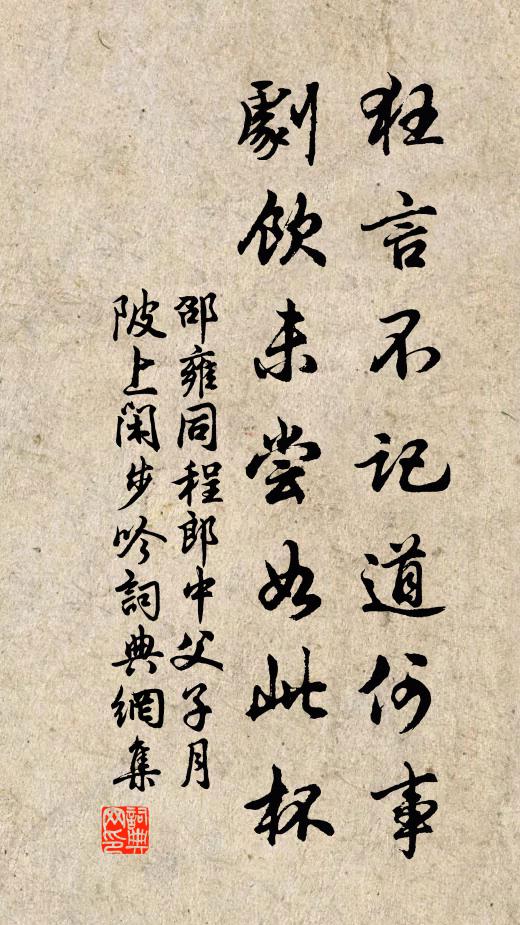 狂言不记道何事
劇飲未嘗如此杯
邵雍同程郎中父子月
陂上闲步吟詞典網集
詞典网印